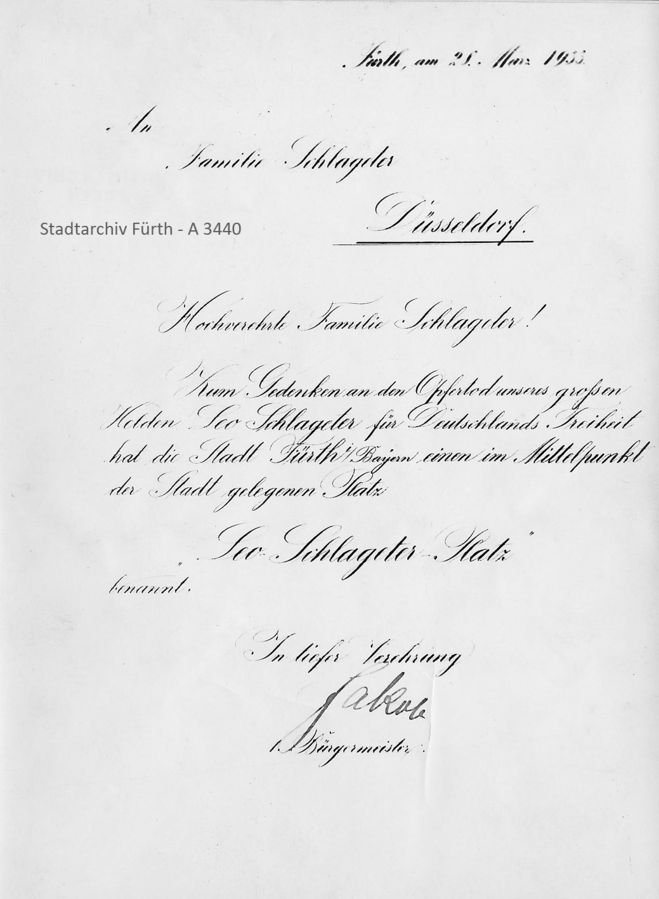 Fürth, am 28. März 1933.
An
Familie Schlageter
Stadtarchiv Fürth - A 3440
Düsseldorf.
Hochverehrte Familie Schlageter!
Zum Gedenken an den Opfertod unseres grossen
Helden Leo Schlageter für Deutschlands Freiheit
hat die Stadt Fürth i/Bayern einen im Mittelpunkt
der Stadt gelegenen Platz
"Leo-Schlageter-Platz"
benannt.
In tiefer Verehrung
Jakob
1. Bürgermeister.